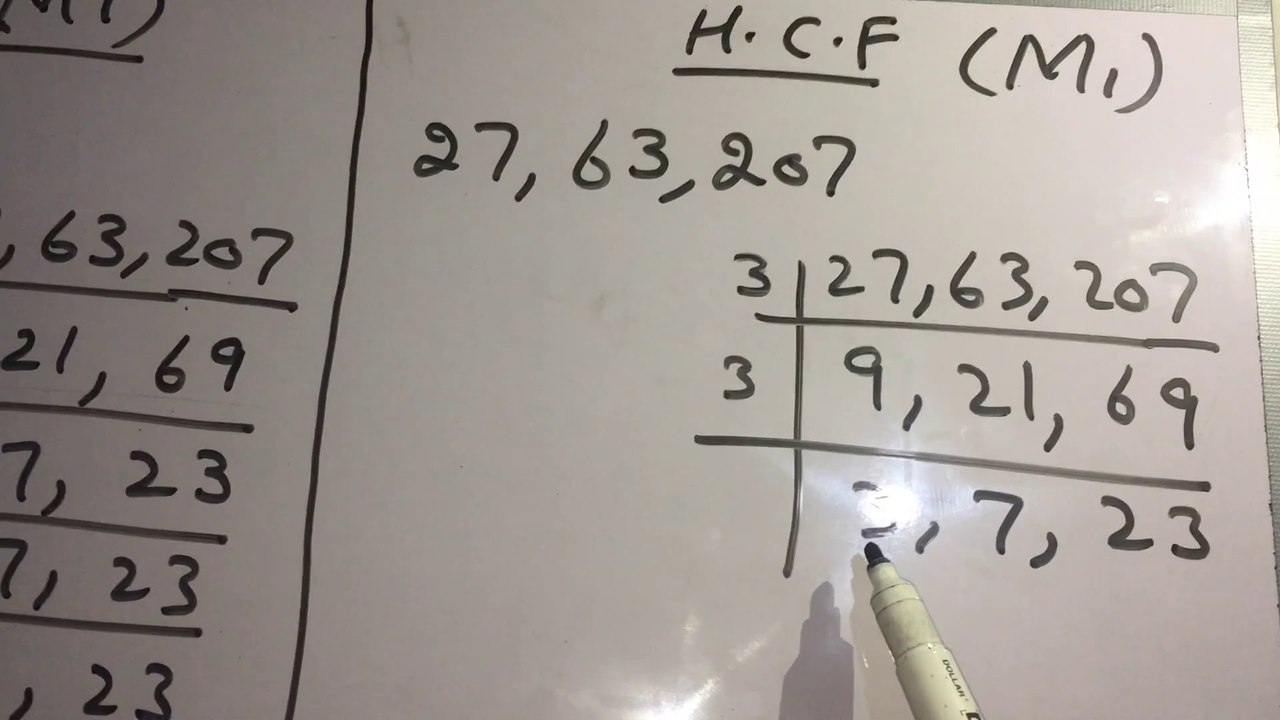 M1)
, 63, 207
21, 69
7, 23
7, 23
, 23
H.C.F (M1)
27, 63, 207
3 | 27, 63, 207
3 | 9, 21, 69
3, 7, 23
DOLLAR